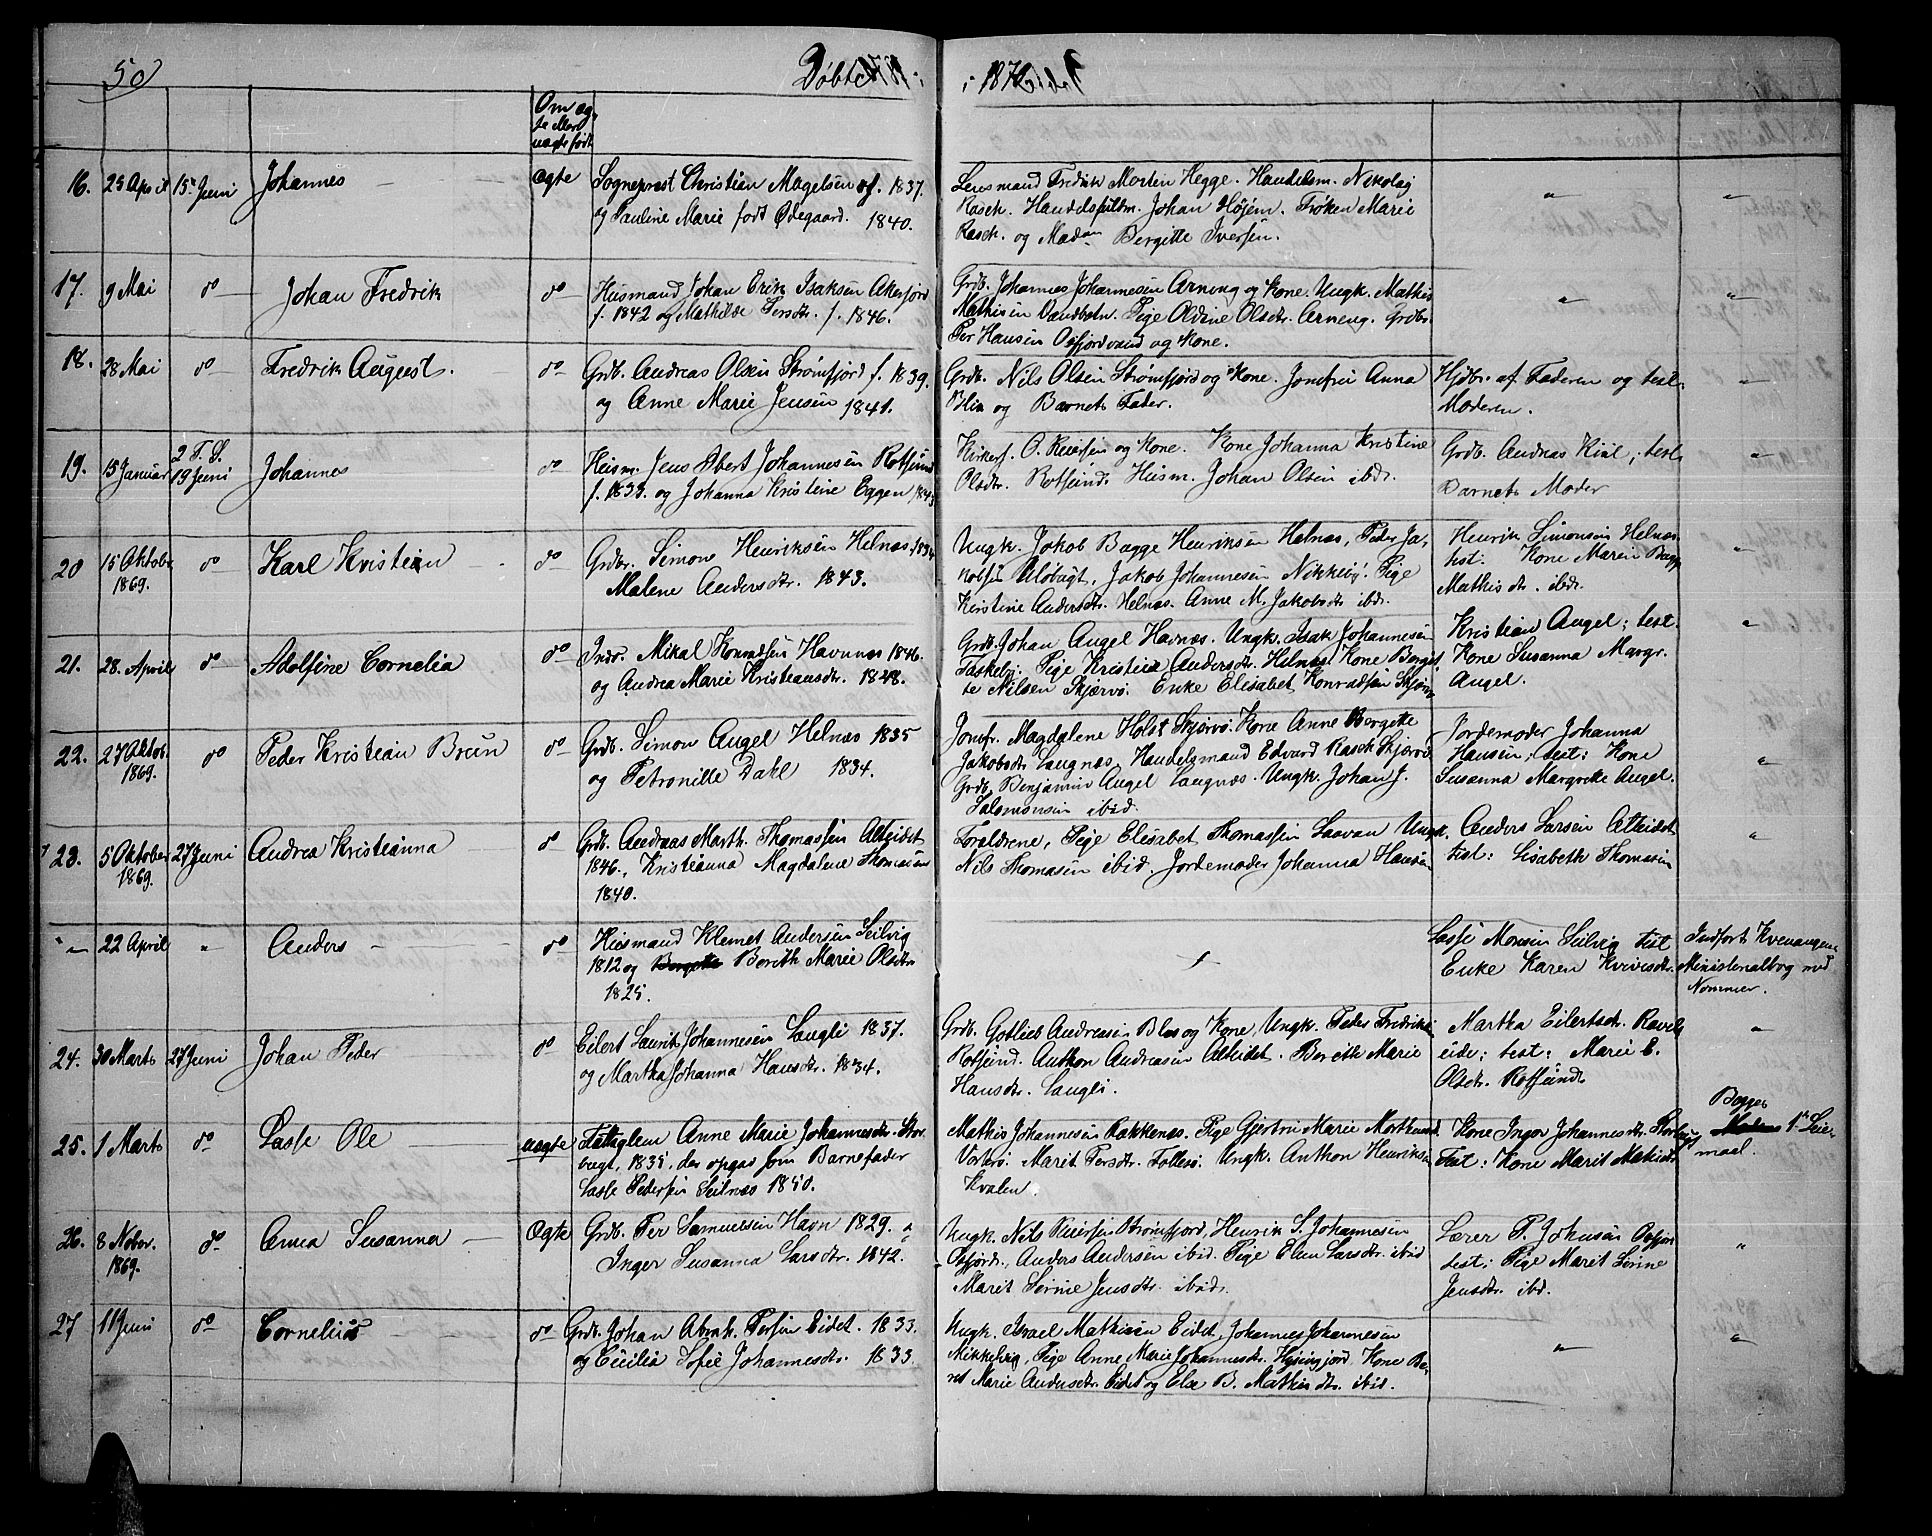 50
Døbte i 1870
Om æg-
te eller
uægte født
16. 25 April 15de Juni Johannes ægte Sogneprest Christian Magelsen f. 1837.
og Pauline Marie født Ødegaard. 1840.
Lensmand Fredrik Morten Hegge. Handelsm. Nikolaj
Rasch. Handelsfuldm. Johan Højem. Frøken Marie
Rasch. og Madam Bergitte Iversen.
" "
17. 9 Mai do Johan Fredrik do Husmand Johan Erik Isaksen Akerfjord
f. 1842 og Mathilde Persdtr. f. 1846.
Grdb. Johannes Johannesen Arneng og Kone. Ungk. Mathis
Mathisen Vandbotn. Pige Oldine Olsdtr. Arneng. Grdb.
Per Hansen Oxfjordvand og Kone.
" "
18. 28 Mai do Fredrik August. do Grdb. Andreas Olsen Strømfjord f. 1839.
og Anne Marie Jensen 1841.
Grdb. Nils Olsen Strømfjord og Kone. Jomfru Anna
Blix og Barnets Fader.
Hjdbr. af Faderen og test.
Moderen.
"
19. 15 Januar 2 P. S.
19 Juni Johannes do Husm. Jens Abert Johannesen Rotsund
f. 1833. og Johanna Kristine Eggen 1843
Kirkes. O. Reiersen og Kone. Kone Johanna Kristine
Olsdtr. Rotsund. Husm. Johan Olsen ibdr.
Grdb. Andreas Kiil; test
Barnets Moder
"
20 15 Oktobr
1869. do Karl Kristian do Grdbr. Simon Henriksen Helnæs. 1834
Malene Andersdtr. 1843.
Ungk. Jakob Bagge Henriksen Helnæs, Peder Ja-
kobsen Uløbugt, Jakob Johannesen Nikkeby. Pige
Kristine Andersdtr. Helnæs. Anne M. Jakobsdtr ibdr.
Henrik Simonsen Helnæs
test: Kone Maren Bagge
Mathisdtr. ibdr.
"
21. 28. April do Adolfine Cornelia do Indr. Mikal Konradsen Havnnæs 1846.
og Andrea Marie Kristiansdtr. 1848.
Grdb. Johan Angel Havnæs. Ungk. Isak Johannesen
Taskeby. Pige Kristine Andersdtr. Helnæs. Kone Bergit-
te Nilsen Skjærvø. Enke Elisabet Konradsen Skjærvø
Kristian Angel; test.
Kone Susanna Margr.
Angel.
"
22. 27 Oktob.
1869. do Peder Kristian Bruun do Grdb. Simon Angel Helnæs 1835
og Petronille Dahl 1834.
Jomf. Magdalene Holst Skjervø. Kone Anne Bergitte
Jakobsdtr Laugnæs. Handelsmand Edvard Rasch Skjervø
Grdb. Benjamin Angel Laugnæs. Ungk. Johan J.
Salomonsen ibid.
Jordemoder Johanna
Hansen, test: Kone
Susanna Margrete Angel.
"
23. 5 Oktober
1869. 27 Juni Andrea Kristianna do Grdb. Andreas Marth. Thomassen Alteidet
1846., Kristianna Magdalene Thomassen
1840.
Forældrene, Pige Elisabet Thomassen Laavan Ungk.
Nils Thomasen ibid. Jordemoder Johanna Hansen
Anders Larsen Alteidet
test: Lisabeth Thomasen
"
"- 22 April " Anders do Husmand Klemet Andersen Seilvig
1812 og Bergitte Bereth Marie Olsdtr.
1825.
Lasse Monsen Seilvig test
Enke Karen Kvivesdtr.
Indført Kvenangens
Ministerialbog med
Nommer.
24. 30 Marts 27 Juni Johan Peder do Eilert Laurits Johannesen Laugli 1837.
og Martha Johanna Hansdtr. 1834.
Grdb. Gotlieb Andreasen Blus og Kone, Ungk. Peder Fredriksen
Rotsund. Anthon Andreasen Alteidet. Berethe Marie
Hansdtr. Laugli.
Martha Eilertsdtr. Ravels-
eide; test: Marie E.
Olsdtr. Rotsund.
"
25. 1 Marts do Lasse Ole uægte Fattiglem Anne Marie Johannesdtr. Stor-
bugt, 1835, der opgav som Barnefader
Lasse Pedersen Seilnæs 1840.
Mathis Johannesen Rakkenæs. Pige Gjertru Marie Morthensd
Vorterø. Marit Persdtr. Follesø. Ungk. Anthon Henriksen
Kvalen.
Kone Inger Johannesdtr. Storbugt
Test: Kone Marit Mathisdtr
Begges
1ste Leier-
maal.
26. 8 Nobvr.
1869. do Anna Susanna Ægte Grdb. Per Samuelsen Havn 1829.
Inger Susanna Larsdtr. 1842.
Ungk. Nils Reiersen Strømfjord, Henrik S. Johannesen
Oxfjord., Anders Andersen ibid. Pige Elen Larsdtr. ibid
Marit Sirine Jensdtr. ibid.
Lærer P. Johnsen Oxfjord
test; Pige Marit Sirine
Jensdtr. ibd.
"
27 11 Juni do Cornelius do Grdb. Johan Abrah. Persen Eidet. 1833.
og Cecilia Sofie Johannesdtr. 1833.
Ungk. Israel Mathisen Eidet. Johannes Johannesen
Mikkelvig, Pige Anne Marie Johannesdtr. Hysingjord. Kone Be-
ret Marie Andersdtr. Eidet og Else B. Mathisdtr. ibid.
" "